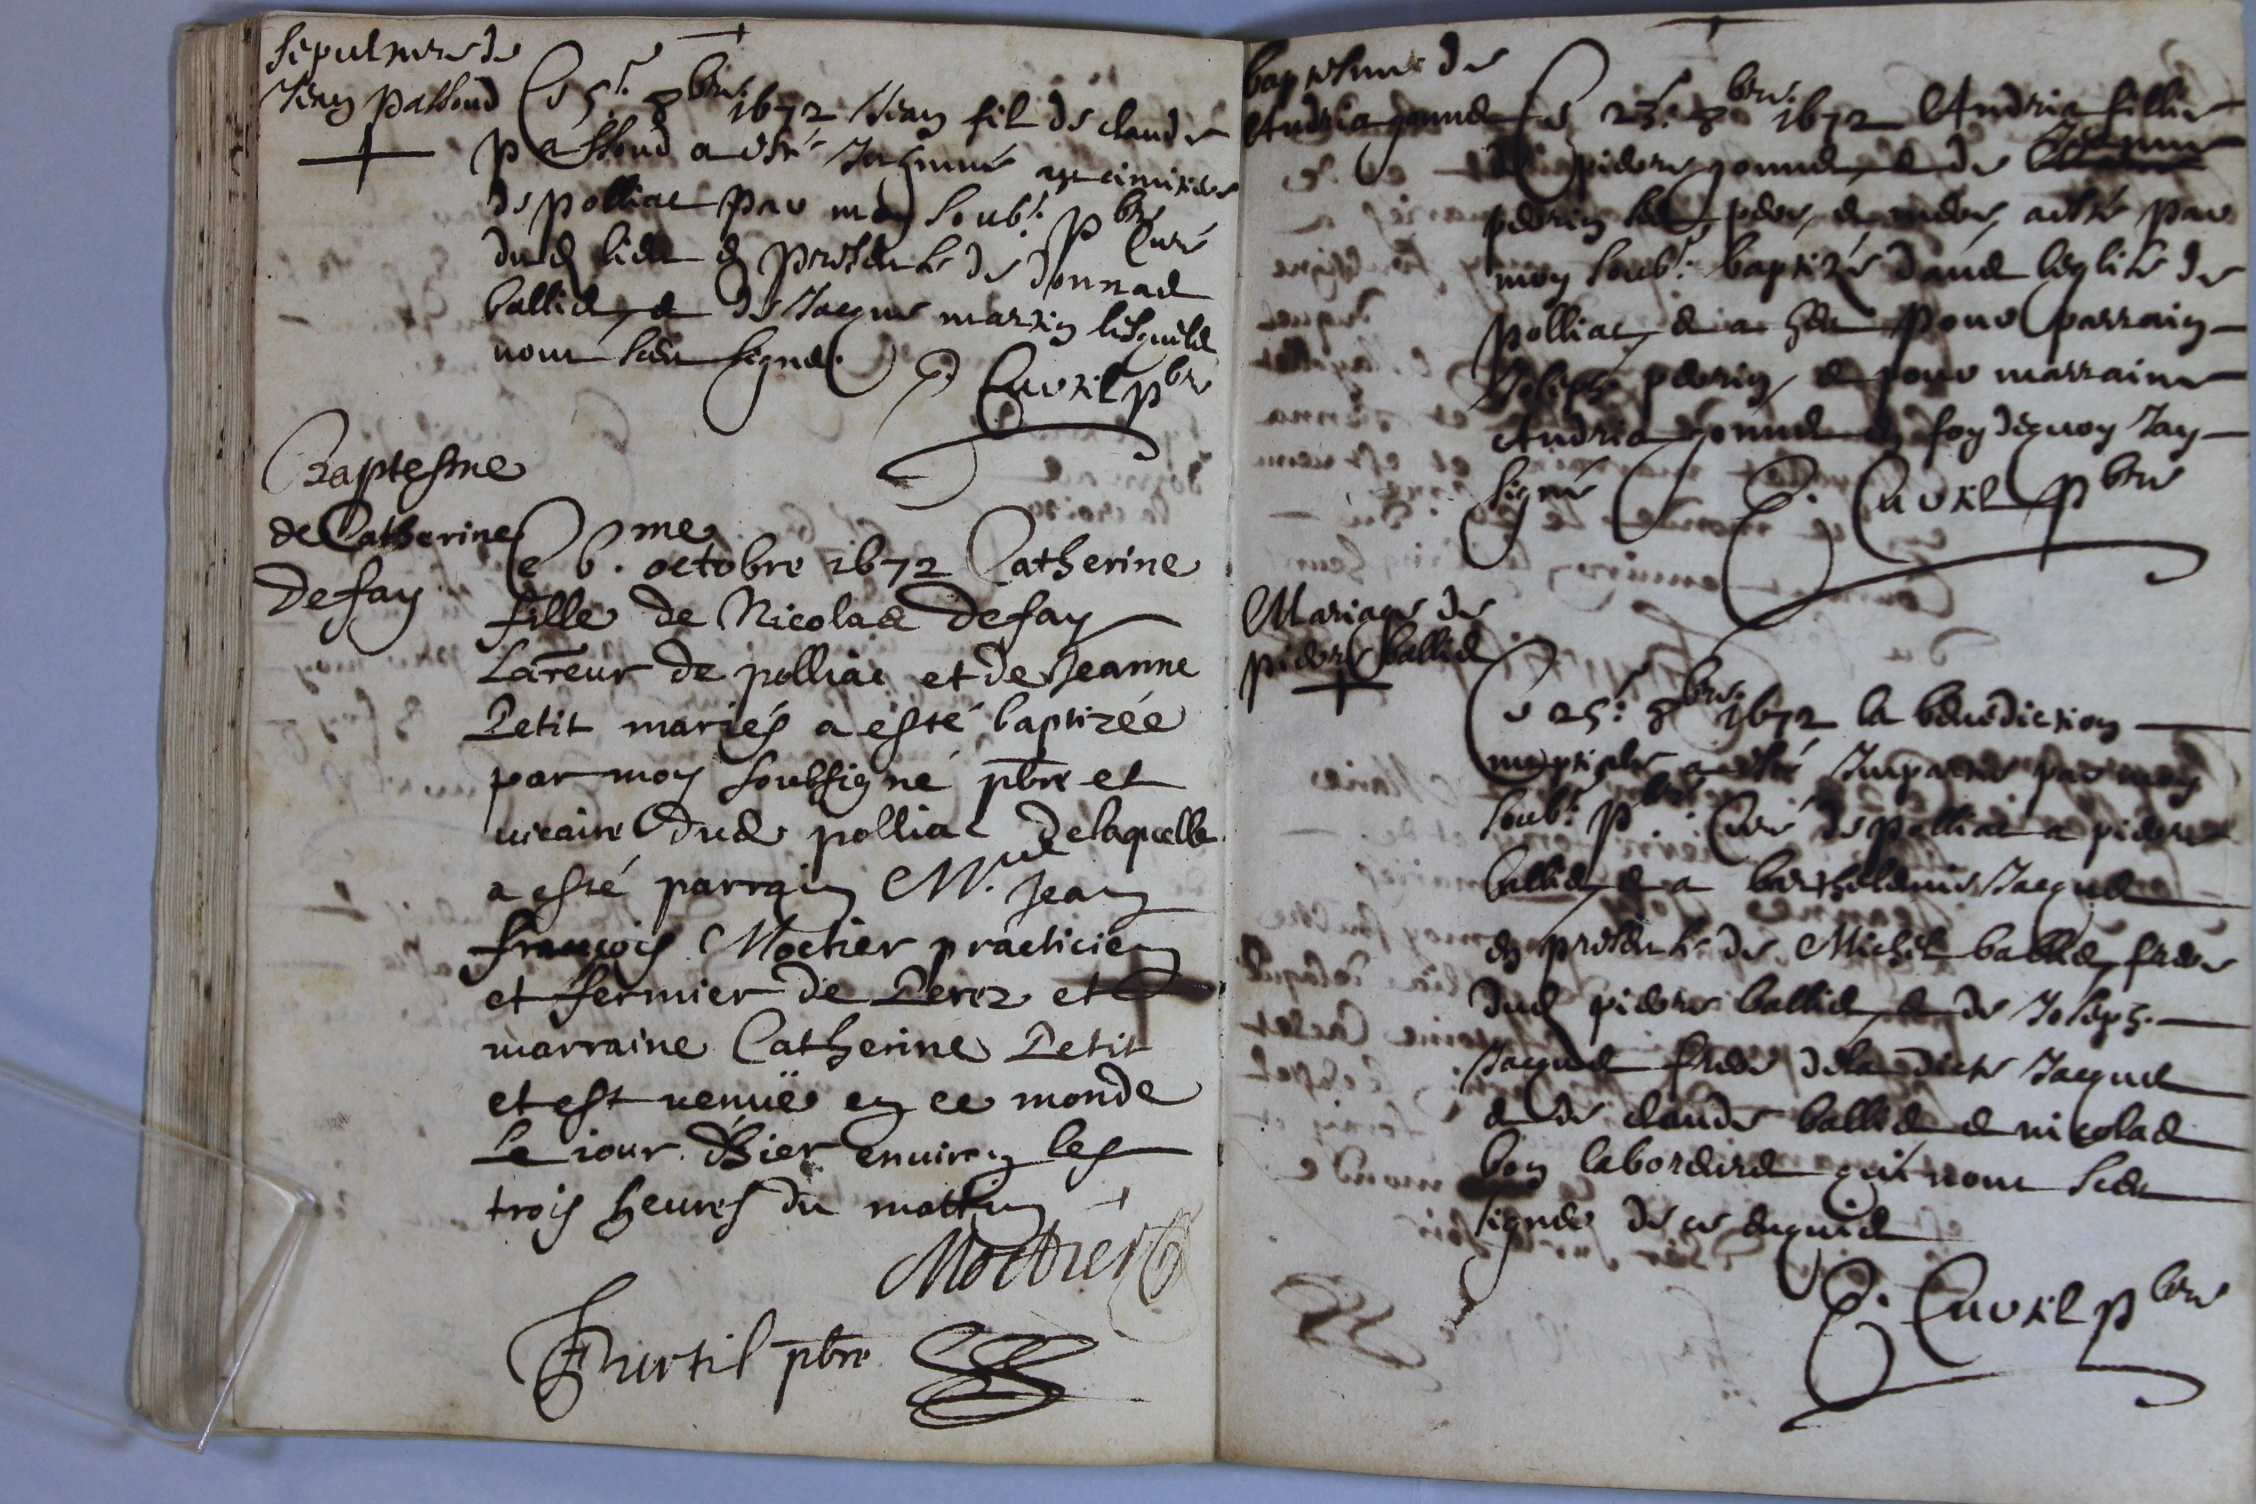 Sepulture de
Jean passoud
Ce 5.e 8bre 1672 Jean fil de claude
passoud a esté Inhumé au cimitiere
de polliat par moy soub.e pbre Curé
dud lieu en presence de donnat
balliet, et de Jacque martin lesquels
nont sceu signer
Cuvtil pbre
Baptesme
de Catherine
Defay
Ce 6.me octobre 1672 Catherine
fille de Nicolas Defay
Laōeur de polliac et de Jeanne
Petit mariés a esté baptizée
par moy soubsigné pbre et
vicaire dud polliac de laquelle
a esté parrain M.re Jean
françois Moctier practicien
et fermier de Perez et
marraine Catherine Petit
et est venüe en ce monde
Le iour d'hier environ les
trois heures du mattin
Moctier
Curtil pbre
baptesme de
Andrea
Ce 23.e 8bre 1672 Andrea fillie
de piere et de
perrin ses pere et mere a esté par
moy soub.e baptizé dans leglise de
polliat, et a heu pour parrain
perrin, et pour marraine
Andrea en foy dequoy Jay
signé
Cuvtil pbre
Mariage de
piere balliet
Ce 25.e 8bre 1672 la benediction
nuptiale a esté Impartie par moy
soub.e pbre Curé de polliat a piere
balliet, et a Jacquet
en presence de Michel balliet, frere
dud piere balliet, et de Joseph
Jacquet frere de la dicte Jacquet
et de claude balliet et nicolas
bon laboureurs qui nont sceu
signer de ce enquis
Cuvtil pbre